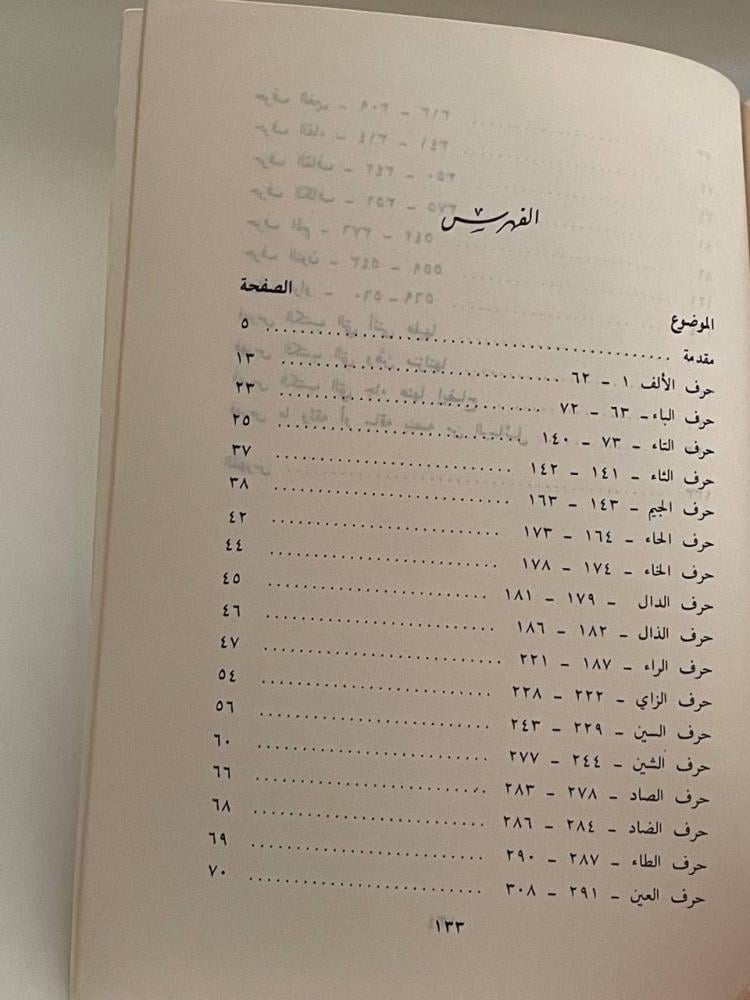 الفهرس
الموضوع الصفحة
مقدمة ........................................ ٥
حرف الألف ١ - ٦٢ ........................ ١٣
حرف الباء - ٦٣ - ٧٢ ........................ ٢٣
حرف التاء - ٧٣ - ١٤٠ ........................ ٢٥
حرف الثاء - ١٤١ - ١٤٢ ........................ ٣٧
حرف الجيم - ١٤٣ - ١٦٣ ........................ ٣٨
حرف الحاء - ١٦٤ - ١٧٣ ........................ ٤٢
حرف الخاء - ١٧٤ - ١٧٨ ........................ ٤٤
حرف الدال - ١٧٩ - ١٨١ ........................ ٤٥
حرف الذال - ١٨٢ - ١٨٦ ........................ ٤٦
حرف الراء - ١٨٧ - ٢٢١ ........................ ٤٧
حرف الزاي - ٢٢٢ - ٢٢٨ ........................ ٥٤
حرف السين - ٢٢٩ - ٢٤٣ ........................ ٥٦
حرف الشين - ٢٤٤ - ٢٧٧ ........................ ٦٠
حرف الصاد - ٢٧٨ - ٢٨٣ ........................ ٦٦
حرف الضاد - ٢٨٤ - ٢٨٦ ........................ ٦٨
حرف الطاء - ٢٨٧ - ٢٩٠ ........................ ٦٩
حرف العين - ٢٩١ - ٣٠٨ ........................ ٧٠
١٣٣